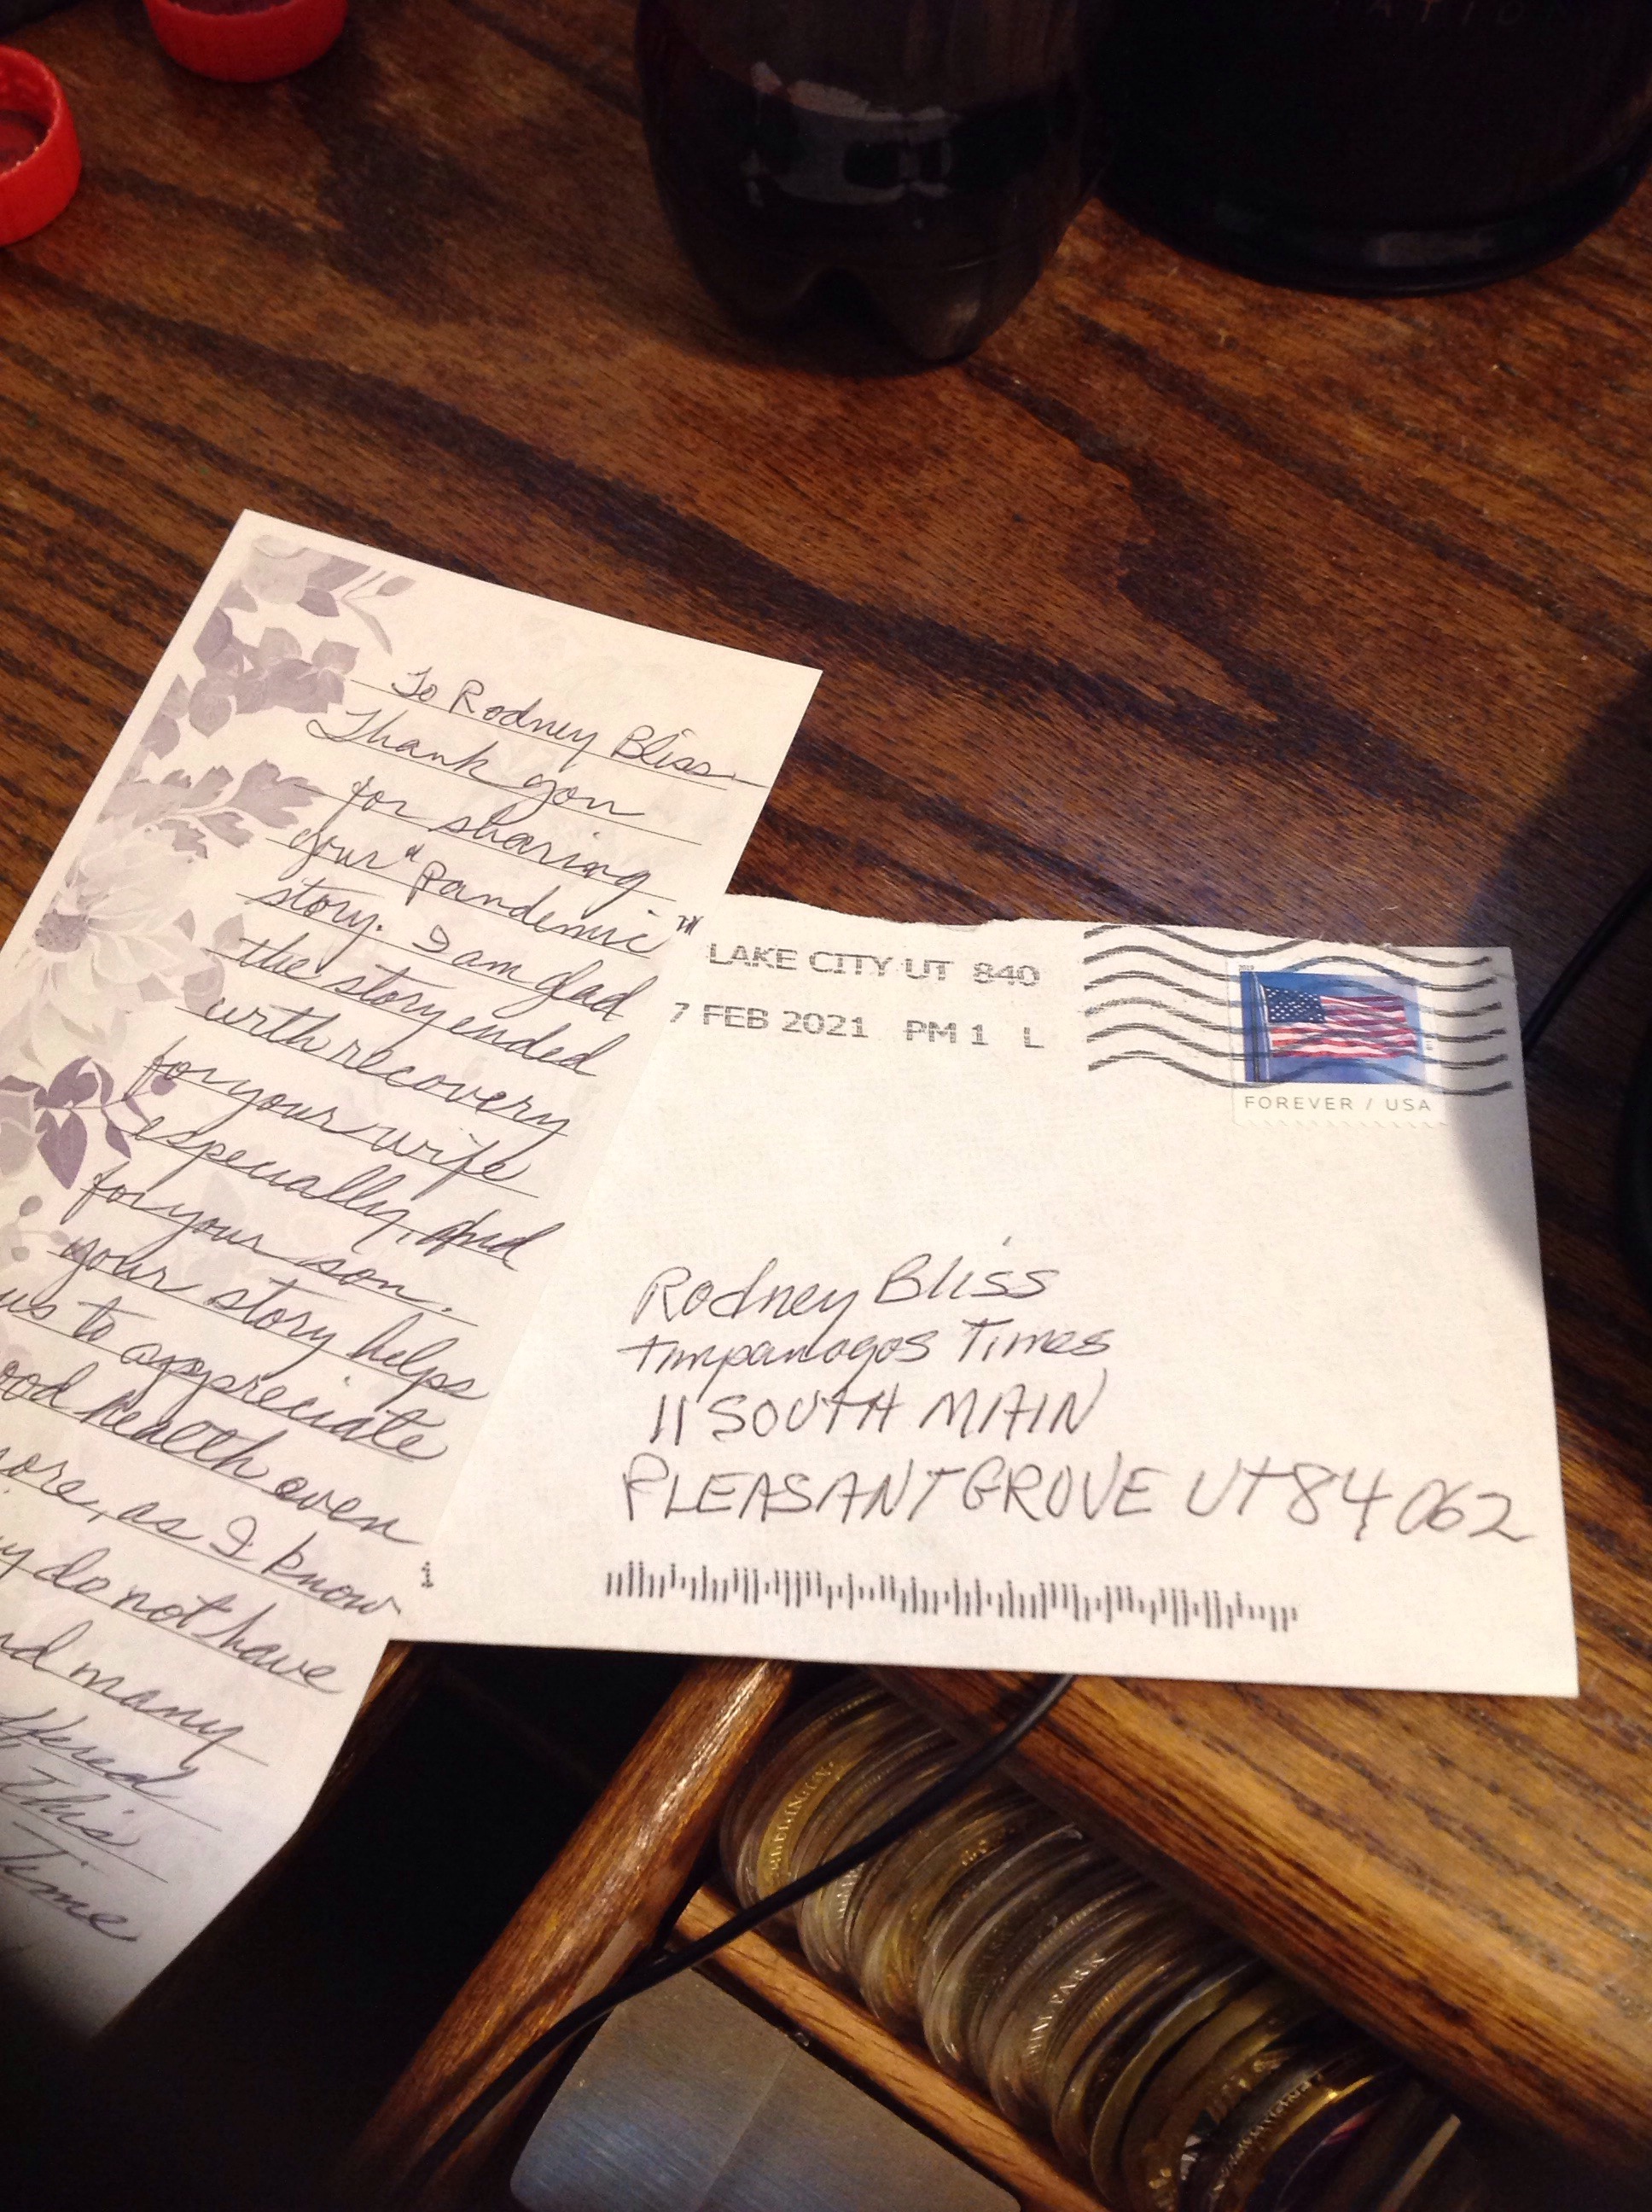 To Rodney Bliss
Thank you
for sharing
your "pandemic"
story. I am glad
the story ended
with recovery
for your wife
especially, and
for your son.
your story helps
us to appreciate
health even
as I know
do not have
many
This
Time
LAKE CITY UT 840
7 FEB 2021 PM 1 L
FOREVER / USA
Rodney Bliss
Timpanogos Times
11 SOUTH MAIN
PLEASANT GROVE UT 84062